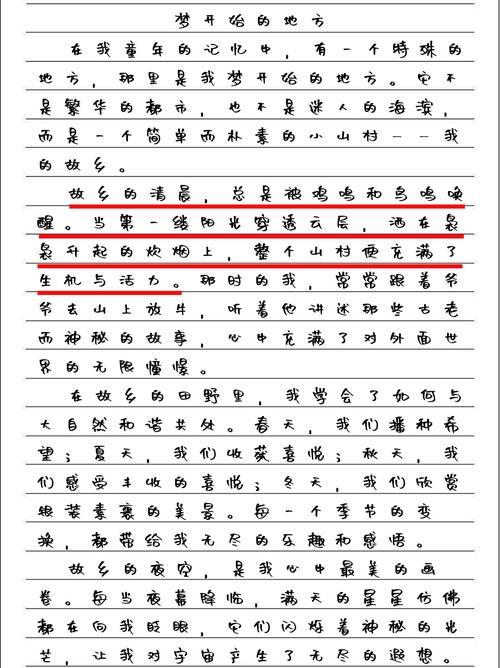 梦开始的地方
在我童年的记忆中，有一个特殊的
地方，那里是我梦开始的地方。它不
是繁华的都市，也不是迷人的海滨，
而是一个简单而朴素的小山村——我
的故乡。
故乡的清晨，总是被鸡鸣和鸟鸣唤
醒。当第一缕阳光穿透云层，洒在袅
袅升起的炊烟上，整个山村便充满了
生机与活力。那时的我，常常跟着爷
爷去山上放牛，听着他讲述那些古老
而神秘的故事，心中充满了对外面世
界的无限憧憬。
在故乡的田野里，我学会了如何与
大自然和谐共处。春天，我们播种希
望；夏天，我们收获喜悦；秋天，我
们感受丰收的喜悦；冬天，我们欣赏
银装素裹的美景。每一个季节的变
换，都带给我无尽的乐趣和感悟。
故乡的夜空，是我心中最美的画
卷。每当夜幕降临，满天的星星仿佛
都在向我眨眼，它们闪烁着神秘的光
芒，让我对宇宙产生了无尽的遐想。